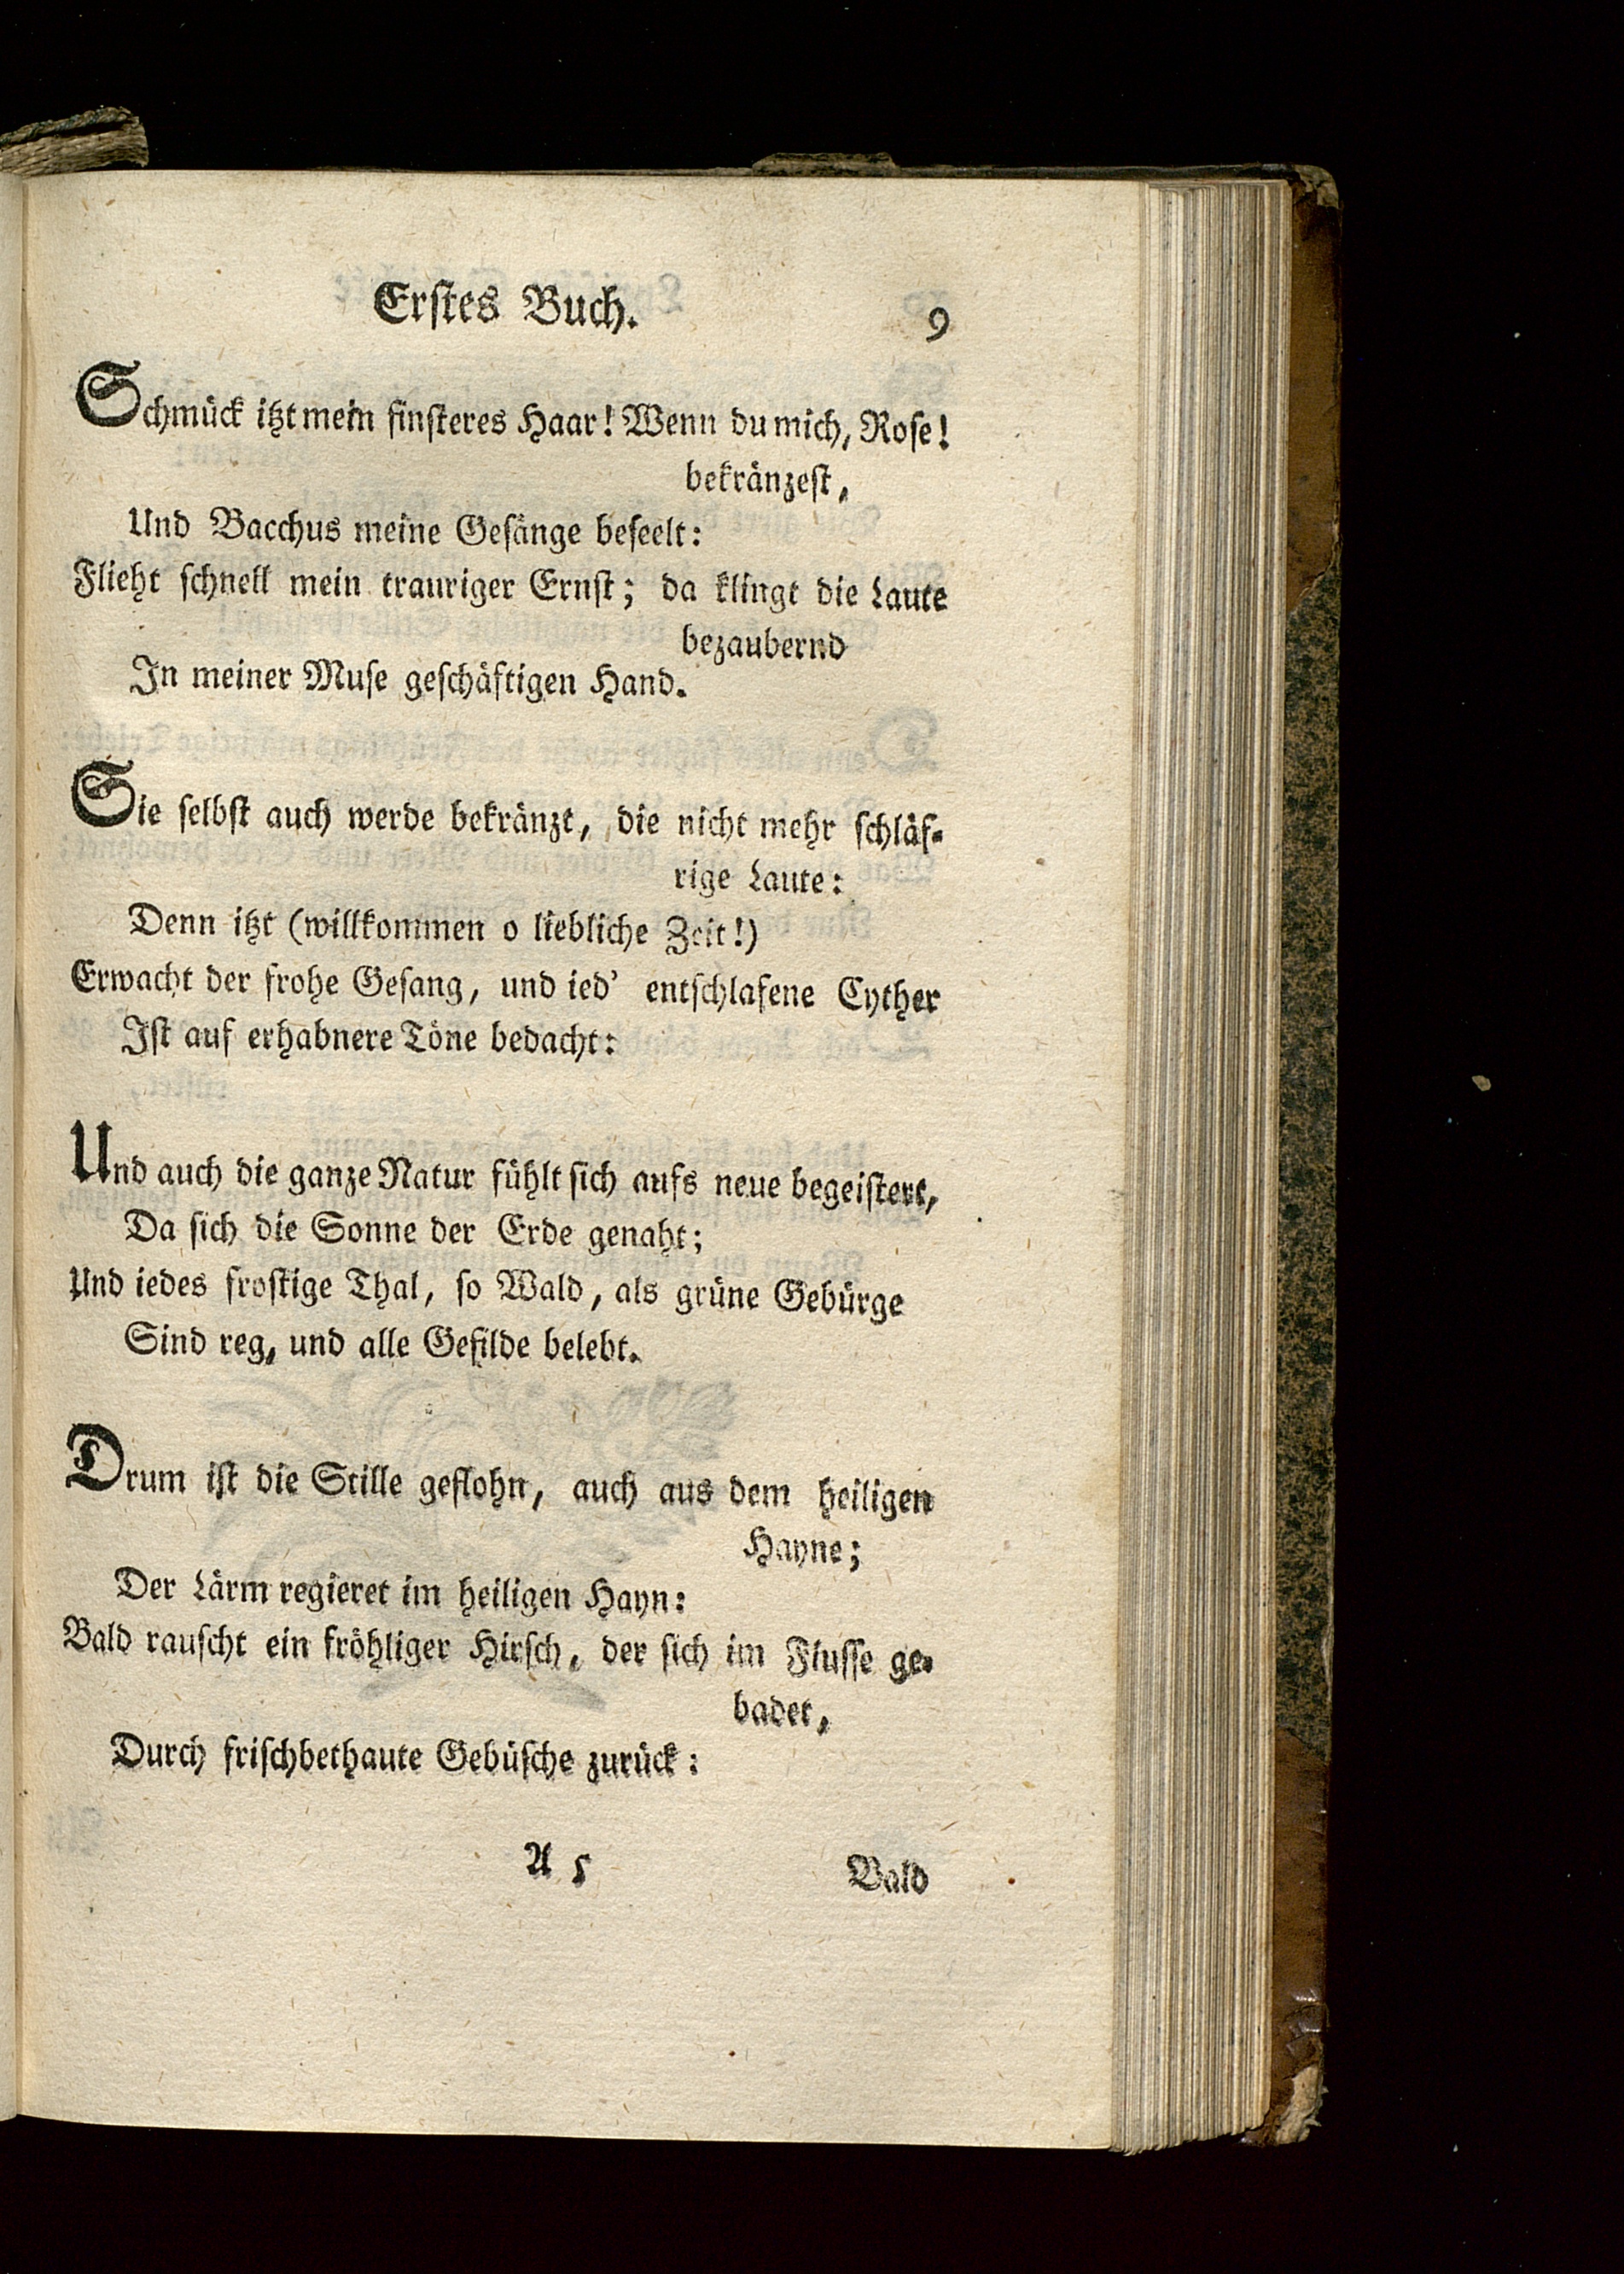 Erstes Buch. 9
Schmück itzt mein finsteres Haar! Wenn du mich, Rose!
bekränzest,
Und Bacchus meine Gesänge beseelt:
Flieht schnell mein trauriger Ernst; da klingt die Laute
bezaubernd
In meiner Muse geschäftigen Hand.
Sie selbst auch werde bekränzt, die nicht mehr schläf-
rige Laute:
Denn itzt (willkommen o liebliche Zeit!)
Erwacht der frohe Gesang, und ied' entschlafene Cyther
Ist auf erhabnere Töne bedacht:
Und auch die ganze Natur fühlt sich aufs neue begeistert,
Da sich die Sonne der Erde genaht;
Und iedes frostige Thal, so Wald, als grüne Gebürge
Sind reg, und alle Gefilde belebt.
Drum ist die Stille geflohn, auch aus dem heiligen
Hayne;
Der Lärm regieret im heiligen Hayn:
Bald rauscht ein fröhliger Hirsch, der sich im Flusse ge-
badet,
Durch frischbethaute Gebüsche zurück:
A 5 Bald